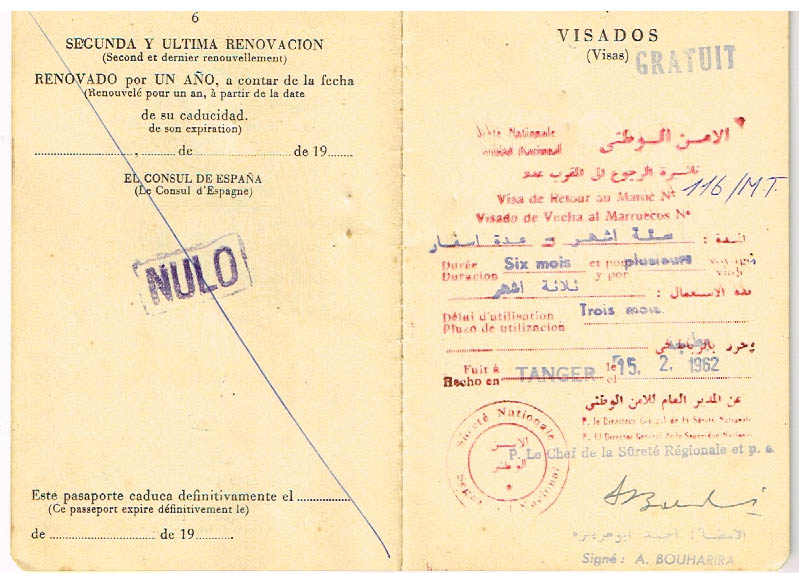 6
SEGUNDA Y ULTIMA RENOVACION
(Second et dernier renouvellement)
RENOVADO por UN AÑO, a contar de la fecha
(Renouvelé pour un an, à partir de la date
de su caducidad.
de son expiration)
de de 19
EL CONSUL DE ESPAÑA
(Le Consul d'Espagne)
NULO
Este pasaporte caduca definitivamente el
(Ce passeport expire définitivement le)
de de 19
VISADOS
(Visas)
GRATUIT
الامن الوطني
Nationale
Visa de Retour au Maroc Nº 116/MT.
Visado de Vuelta al Marruecos Nº
المدة : ستة اشهر عدة اسفار
Durée Six mois et pour plusieurs
Duracion y por viaj
مدة الاستعمال : ثلاثة اشهر
Délai d'utilisation Trois mois
Plazo de utilizacion
وحرر
Fait à TANGER le 15. 2. 1962
Hecho en el
عن المدير العام للامن الوطني
P. le Directeur General de la Sûreté Nationale
P. El Director General de la Seguridad Nacional
P. Le Chef de la Sûreté Régionale et p. o.
Sûreté Nationale
الامن
الوطني
Nacional
الامضاء : احمد ابوحريره
Signé : A. BOUHARIRA